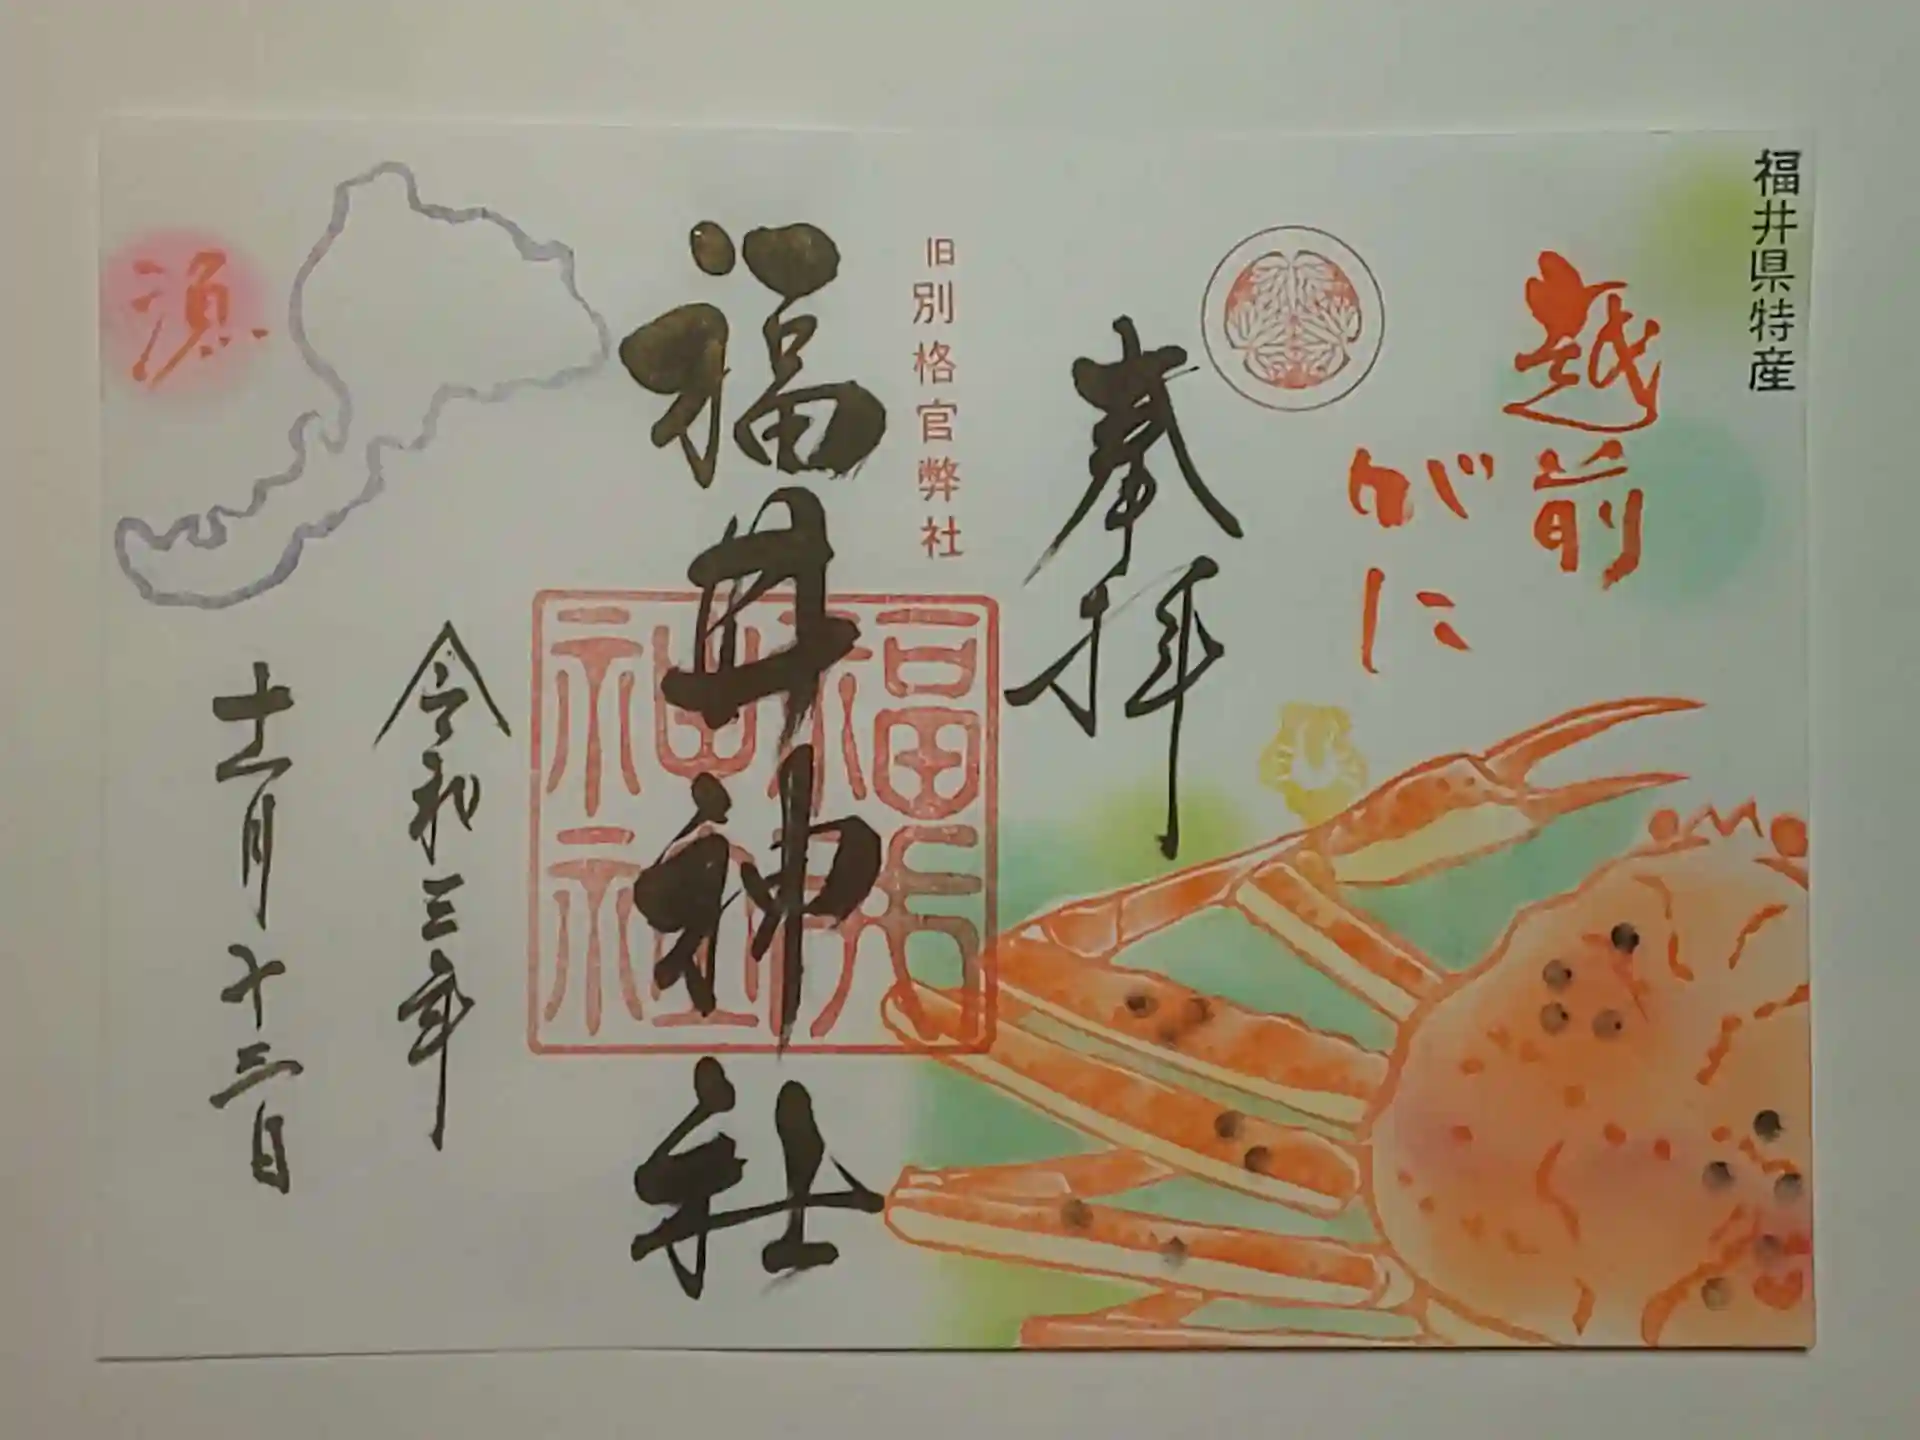 福井県特産
越前
がに
奉拝
旧別格官弊社
福井神社
令和三年
十一月十三日